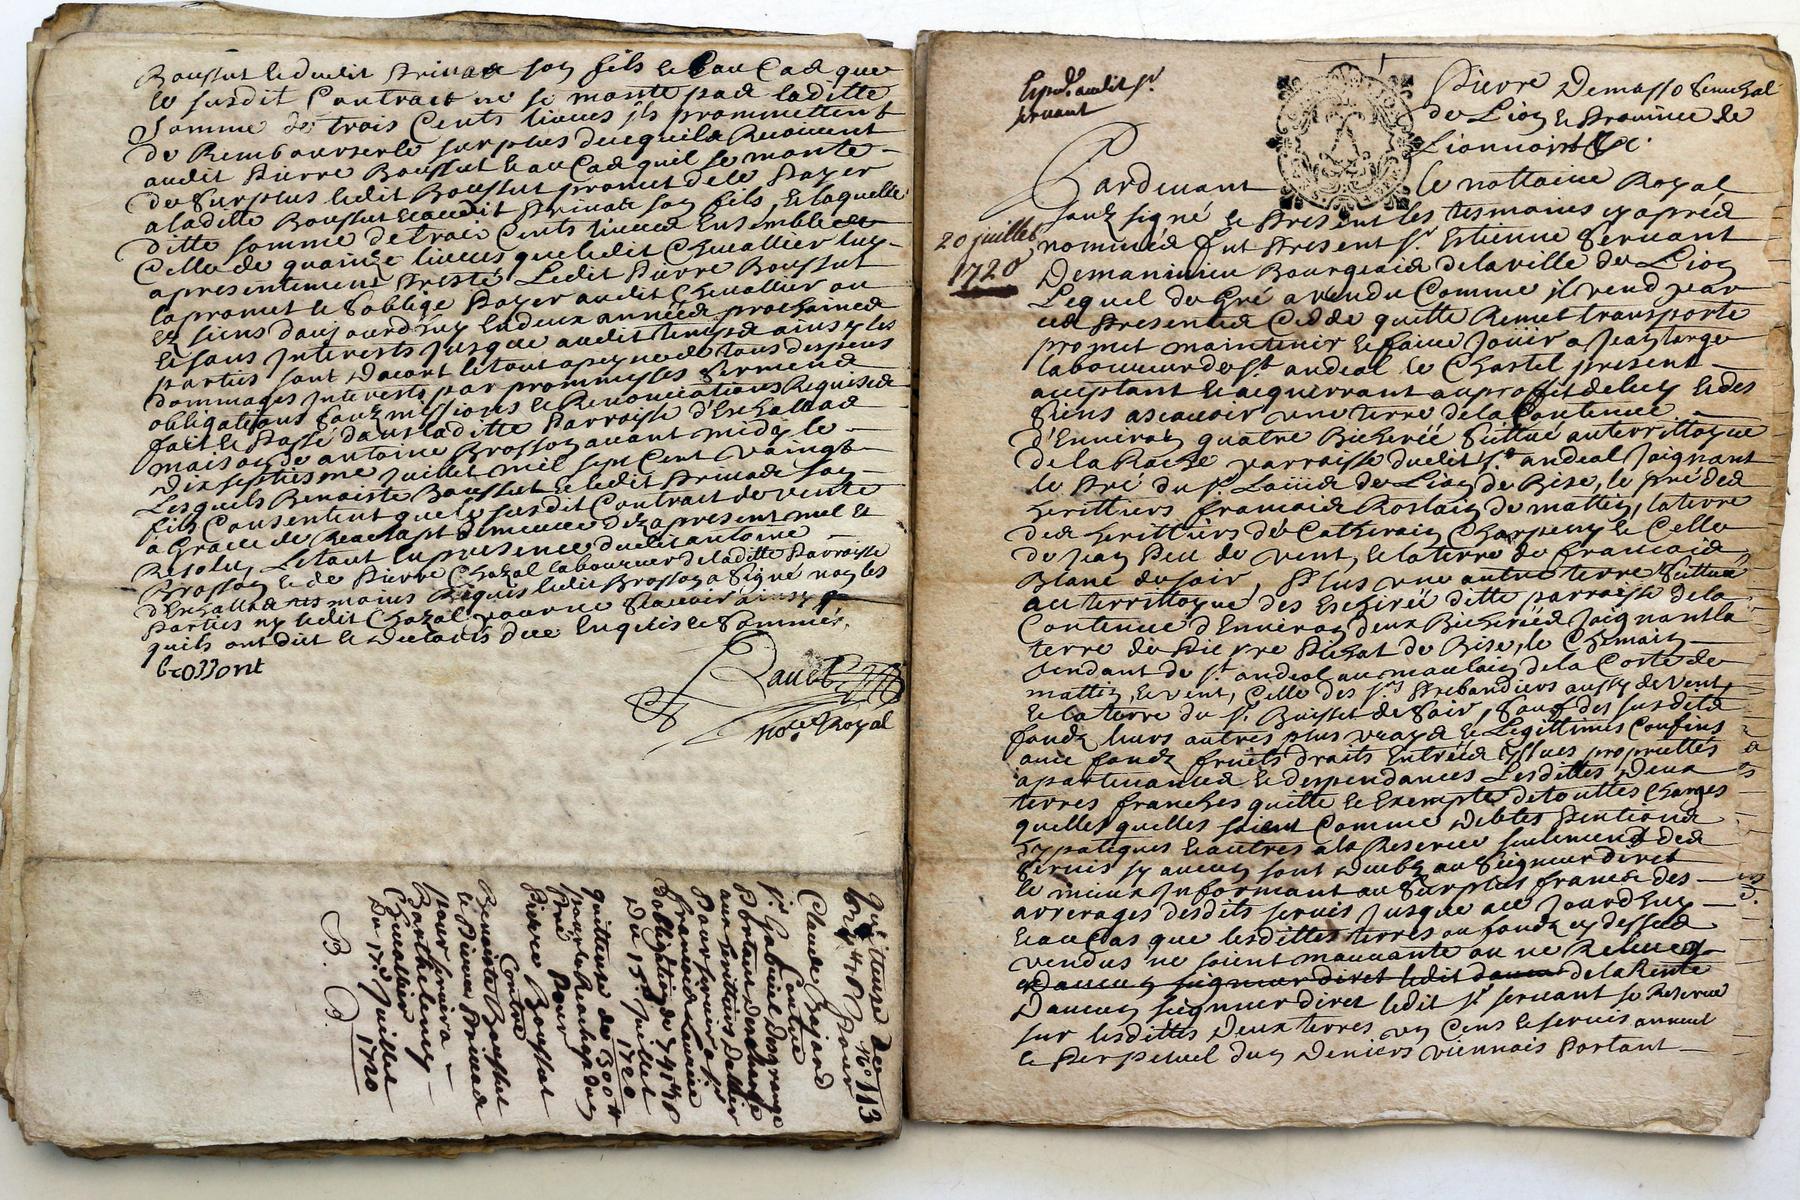 Boussut et dudit Privas son fils et au Cas que
le susdit Contract ne se monte pas laditte
Somme de trois Cents livres ils promettent
de Rembourser le surplus de ce quils Recoivent
audit Pierre Boussut et au Cas quil se monte
de Surplus ledit Boussut promet de le Payer
a laditte Boussut et audit Privas son fils, et laquelle
ditte somme de trois Cents livres Ensemble et
Celle de quainze livres que ledit Chevallier luy
a presentement Presté Ledit Pierre Boussut
la promet et soblige Payer audit Chevallier ou
es siens daujourdhuy En deux années prochaines
Et sans Interests Jusque audit temps ainsy les
parties sont dacort le tout a peyne de tous despens
dommages Interests par prommesses serments
obligations soubzmissions et Renonciations Requises
fait et Passé dans laditte Parroisse d'Eschallas
maison de antoine Brosson avant midy le
dix septiesme Juillet mil sept Cent vaingt
Lesquels Benoiste Boussut et ledit Privas son
fils Consentent que le susdit Contract de vente
a Grace de Reachapt demeure dez a present nul et
Resolu, Le tout En presence dudit antoine
Brosson et de Pierre Chazal laboureur de laditte Parroisse
d'Eschallas tesmoins Requis ledit Brosson a Signé non les
Parties ny ledit Chazal pour ne Scavoir ainsy
quils ont dit et declaré de ce Enquis et Sommés.
brossont
Not.re Royal
Quittance des
No 113
Pour
Claude Bajard
Contre
Sr. Gabriel Desgrange
Portant descharge
aux heritiers
Pour servir a Sr
francois
Dobligation de
Du 15e Juillet
1720
quittance de 300 tt
pour le Reachapt dun
Pré Pour
Pierre Boussut
Contre
Benoiste Boussut
et Privas
pour servir a
Barthelemy
Chevallier
Du 17e Juillet
1720
B. B.
Expd. audit Sr.
servant
Pierre Demasso Senechal
de Lion et Province de
Lionnois &c.
Pardevant le nottaire Royal
20 juillet
1720
soubz signé et Present les tesmoins cy apres
nommés fut Present Sr. Estienne Servant
Demaninieu Bourgeois de la ville de Lion
Lequel de Gré a vendu Comme il vend par
ces Presentes Cedde quitte Remet transporte
promet maintenir et faire Jouir a Jean large
laboureur de St. andeol le Chastel present
acceptant et acquerrant au proffit de luy et des
siens ascavoir une terre de la Contenue
d'Environ quatre Bicherée Scittué au territtoyre
de la Roche parroisse dudit St. andeol Joignant
le Pré du Sr. de Lion de Bise, le pré des
heritiers francois Roslain de mattin, la terre
des heritiers de Catherin Charpeney et Celle
de Jean Peu de vent, et la terre de francois
Blanc de soir, Plus une autre terre Scittué
au territtoyre des ditte parroisse de la
Contenue d'Environ deux Bicherées Joignant la
terre de Pierre de Bise, le Chemin
tendant de St. andeol au moulin de la Coste de
mattin, et vent, Celle des Srs Prebandiers aussy de vent,
Et la terre du Sr. Buisset de Soir, Sauf des susdits
fondz leurs autres plus vrays et Legittimes Confins
avec fondz fruits droits Entrées Issues proprietés
apartenances et despendances Lesdittes deux
terres franches quitte et Exempte de touttes Charges
quelles quelles soient Comme debtes Pentions
Ypoteques et autres a la Reserve seulement des
servis sy aucun sont deubz au Seigneur diret
le mieux Informant au Surplus francs des
arrerages desdits servis Jusque au Jourdhuy
Et au Cas que lesdittes terres ou fondz cy dessus
vendus ne soient mouvante ou ne Releve
Daucun seigneur diret ledit de la Rente
Daucun seigneur diret ledit Sr servant se Reserve
sur lesdittes Deux terres un Cens et servis annuel
et Perpetuel dun Deniers viennois Portant